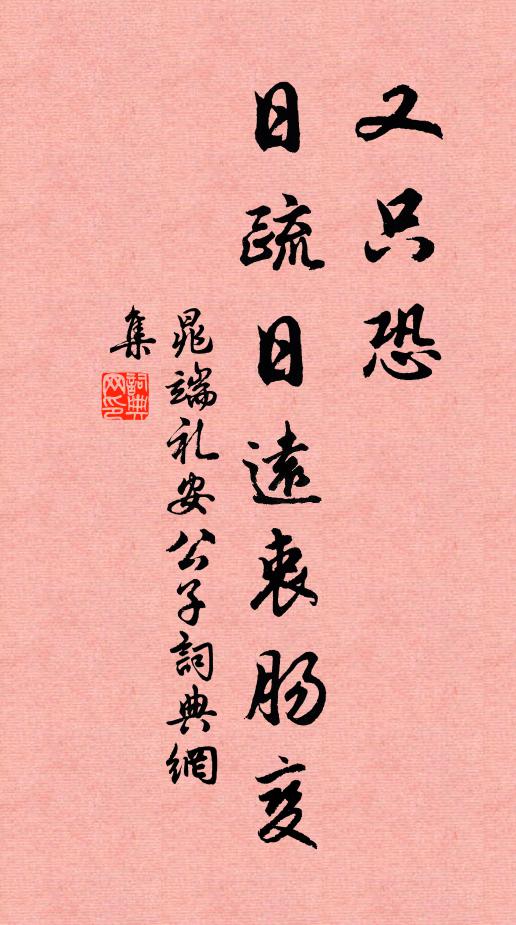 又只恐
日疏日遠衷肠变
晁端礼安公子詞典網
集
詞典
网印